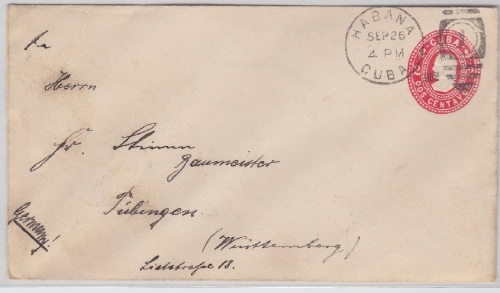 HABANA
SEP 26
4 PM
CUBA
CUBA
DOS CENTAVOS
Herrn
Fr. Stimm
Baumeister
Tübingen.
(Württemberg)
Germany!